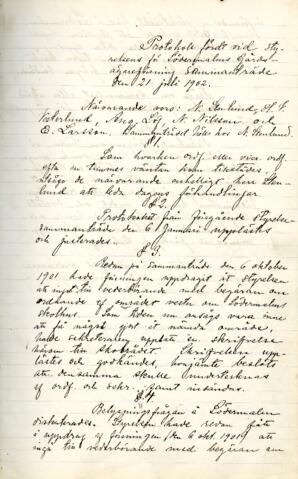 Protokoll fördt vid sty-
relsens för Södermalms Gårds-
ägareförening sammanträde
den 21 juli 1902.
Närvarande voro: N. Stenlund, H. F.
Vesterlund, Aug. Löf, N. Nilsson och
E. Larsson. Sammanträdet hölls hos N. Stenlund.
§ 1.
Som hvarken ordf. eller vice ordf.
efter en timmes väntan kom tillstädes
utsågs de närvarande enhälligt herr Sten-
lund att leda dagens förhandlingar
§ 2.
Protokollet från föregående styrelse
sammanträde den 6 Januari upplästes
och justerades.
§ 3.
Redan på sammanträde den 6 oktober
1901 hade föreningen uppdragit åt styrelsen
att ingå till vederbörande med begäran om
ordnande af området vester om Södermalms
skolhus. Som tiden nu ansågs vara inne
att få något gjort åt nämda område,
hade sekreteraren uppsatt en skrifvelse
härom till Skolrådet. Skrifvelsen upp-
lästes och godkändes hvarjemte beslöts
att densamma skulle undertecknas
af ordf. och sekr. samt insändas.
§ 4.
Belysningsfrågan å Södermalm
diskuterades. Styrelsen hade redan fått
i uppdrag af föreningen den 6 okt 1901 att
ingå till vederbörande med begäran om